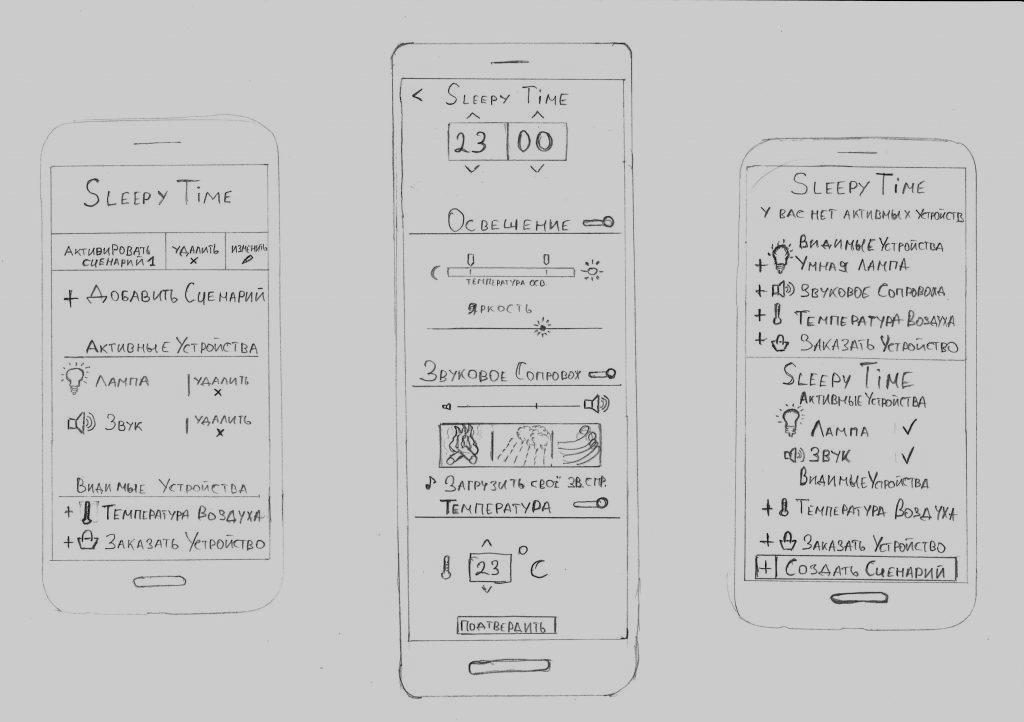 SLEEPY TIME
АКТИВИРОВАТЬ СЦЕНАРИЙ 1
УДАЛИТЬ
ИЗМЕНИТЬ
+ ДОБАВИТЬ СЦЕНАРИЙ
АКТИВНЫЕ УСТРОЙСТВА
ЛАМПА
УДАЛИТЬ
ЗВУК
УДАЛИТЬ
ВИДИМЫЕ УСТРОЙСТВА
+ ТЕМПЕРАТУРА ВОЗДУХА
+ ЗАКАЗАТЬ УСТРОЙСТВО
< SLEEPY TIME
23 00
ОСВЕЩЕНИЕ
ТЕМПЕРАТУРА ОСВ.
ЯРКОСТЬ
ЗВУКОВОЕ СОПРОВОЖ
ЗАГРУЗИТЬ СВОЁ ЗВ.СПР.
ТЕМПЕРАТУРА
23 °C
ПОДТВЕРДИТЬ
SLEEPY TIME
У ВАС НЕТ АКТИВНЫХ УСТРОЙСТВ
ВИДИМЫЕ УСТРОЙСТВА
+ УМНАЯ ЛАМПА
+ ЗВУКОВОЕ СОПРОВОЖ
+ ТЕМПЕРАТУРА ВОЗДУХА
+ ЗАКАЗАТЬ УСТРОЙСТВО
SLEEPY TIME
АКТИВНЫЕ УСТРОЙСТВА
ЛАМПА
ЗВУК
ВИДИМЫЕ УСТРОЙСТВА
+ ТЕМПЕРАТУРА ВОЗДУХА
+ ЗАКАЗАТЬ УСТРОЙСТВО
+ СОЗДАТЬ СЦЕНАРИЙ